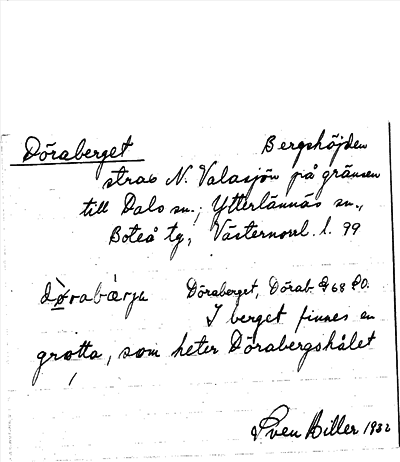 Döraberget Bergshöjden
strax N. Valasjön på gränsen
till Dals sn., Ytterlännäs sn.,
Boteå tg, Västernorrl. l. 99
dørabærju Döraberget, Dörab.
I berget finnes en
grotta, som heter Dörabergshålet
Sven Biller 1932